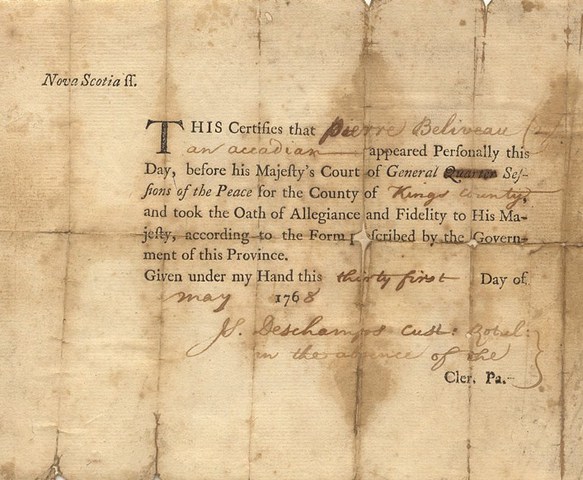 Nova Scotia ſſ.
THIS Certifies that Pierre Beliveau
an accadian appeared Perſonally this
Day, before his Majeſty's Court of General Quarter Seſ-
ſions of the Peace for the County of Kings County,
and took the Oath of Allegiance and Fidelity to His Ma-
jeſty, according to the Form ſcribed by the Govern-
ment of this Province.
Given under my Hand this thirty first Day of
may 1768
Js. Deschamps Cust: Rotal:
in the absence of the
Cler. Pa.